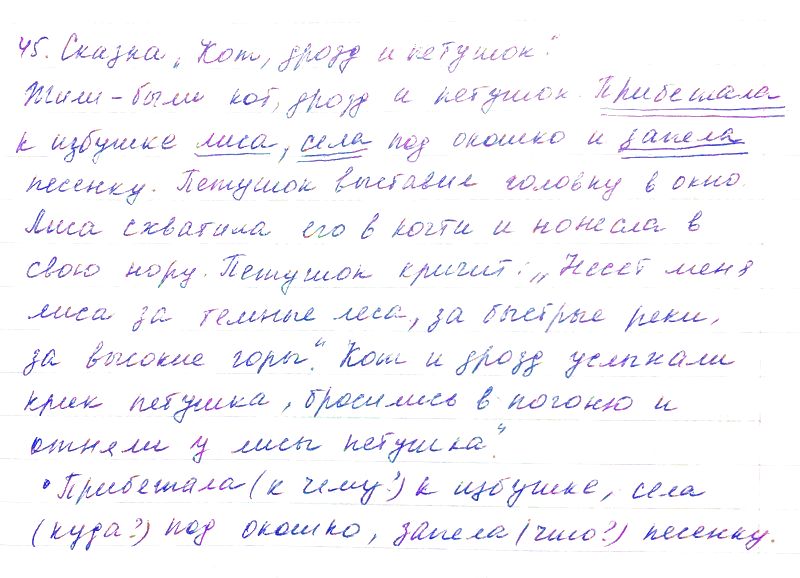 45. Сказка „Кот, дрозд и петушок“.
Жили-были кот, дрозд и петушок. Прибежала
к избушке лиса, села под окошко и запела
песенку. Петушок выставил головку в окно.
Лиса схватила его в когти и понесла в
свою нору. Петушок кричит: „Несет меня
лиса за темные леса, за быстрые реки,
за высокие горы“. Кот и дрозд услыхали
крик петушка, бросились в погоню и
отняли у лисы петушка“.
• Прибежала (к чему?) к избушке, села
(куда?) под окошко, запела (что?) песенку.